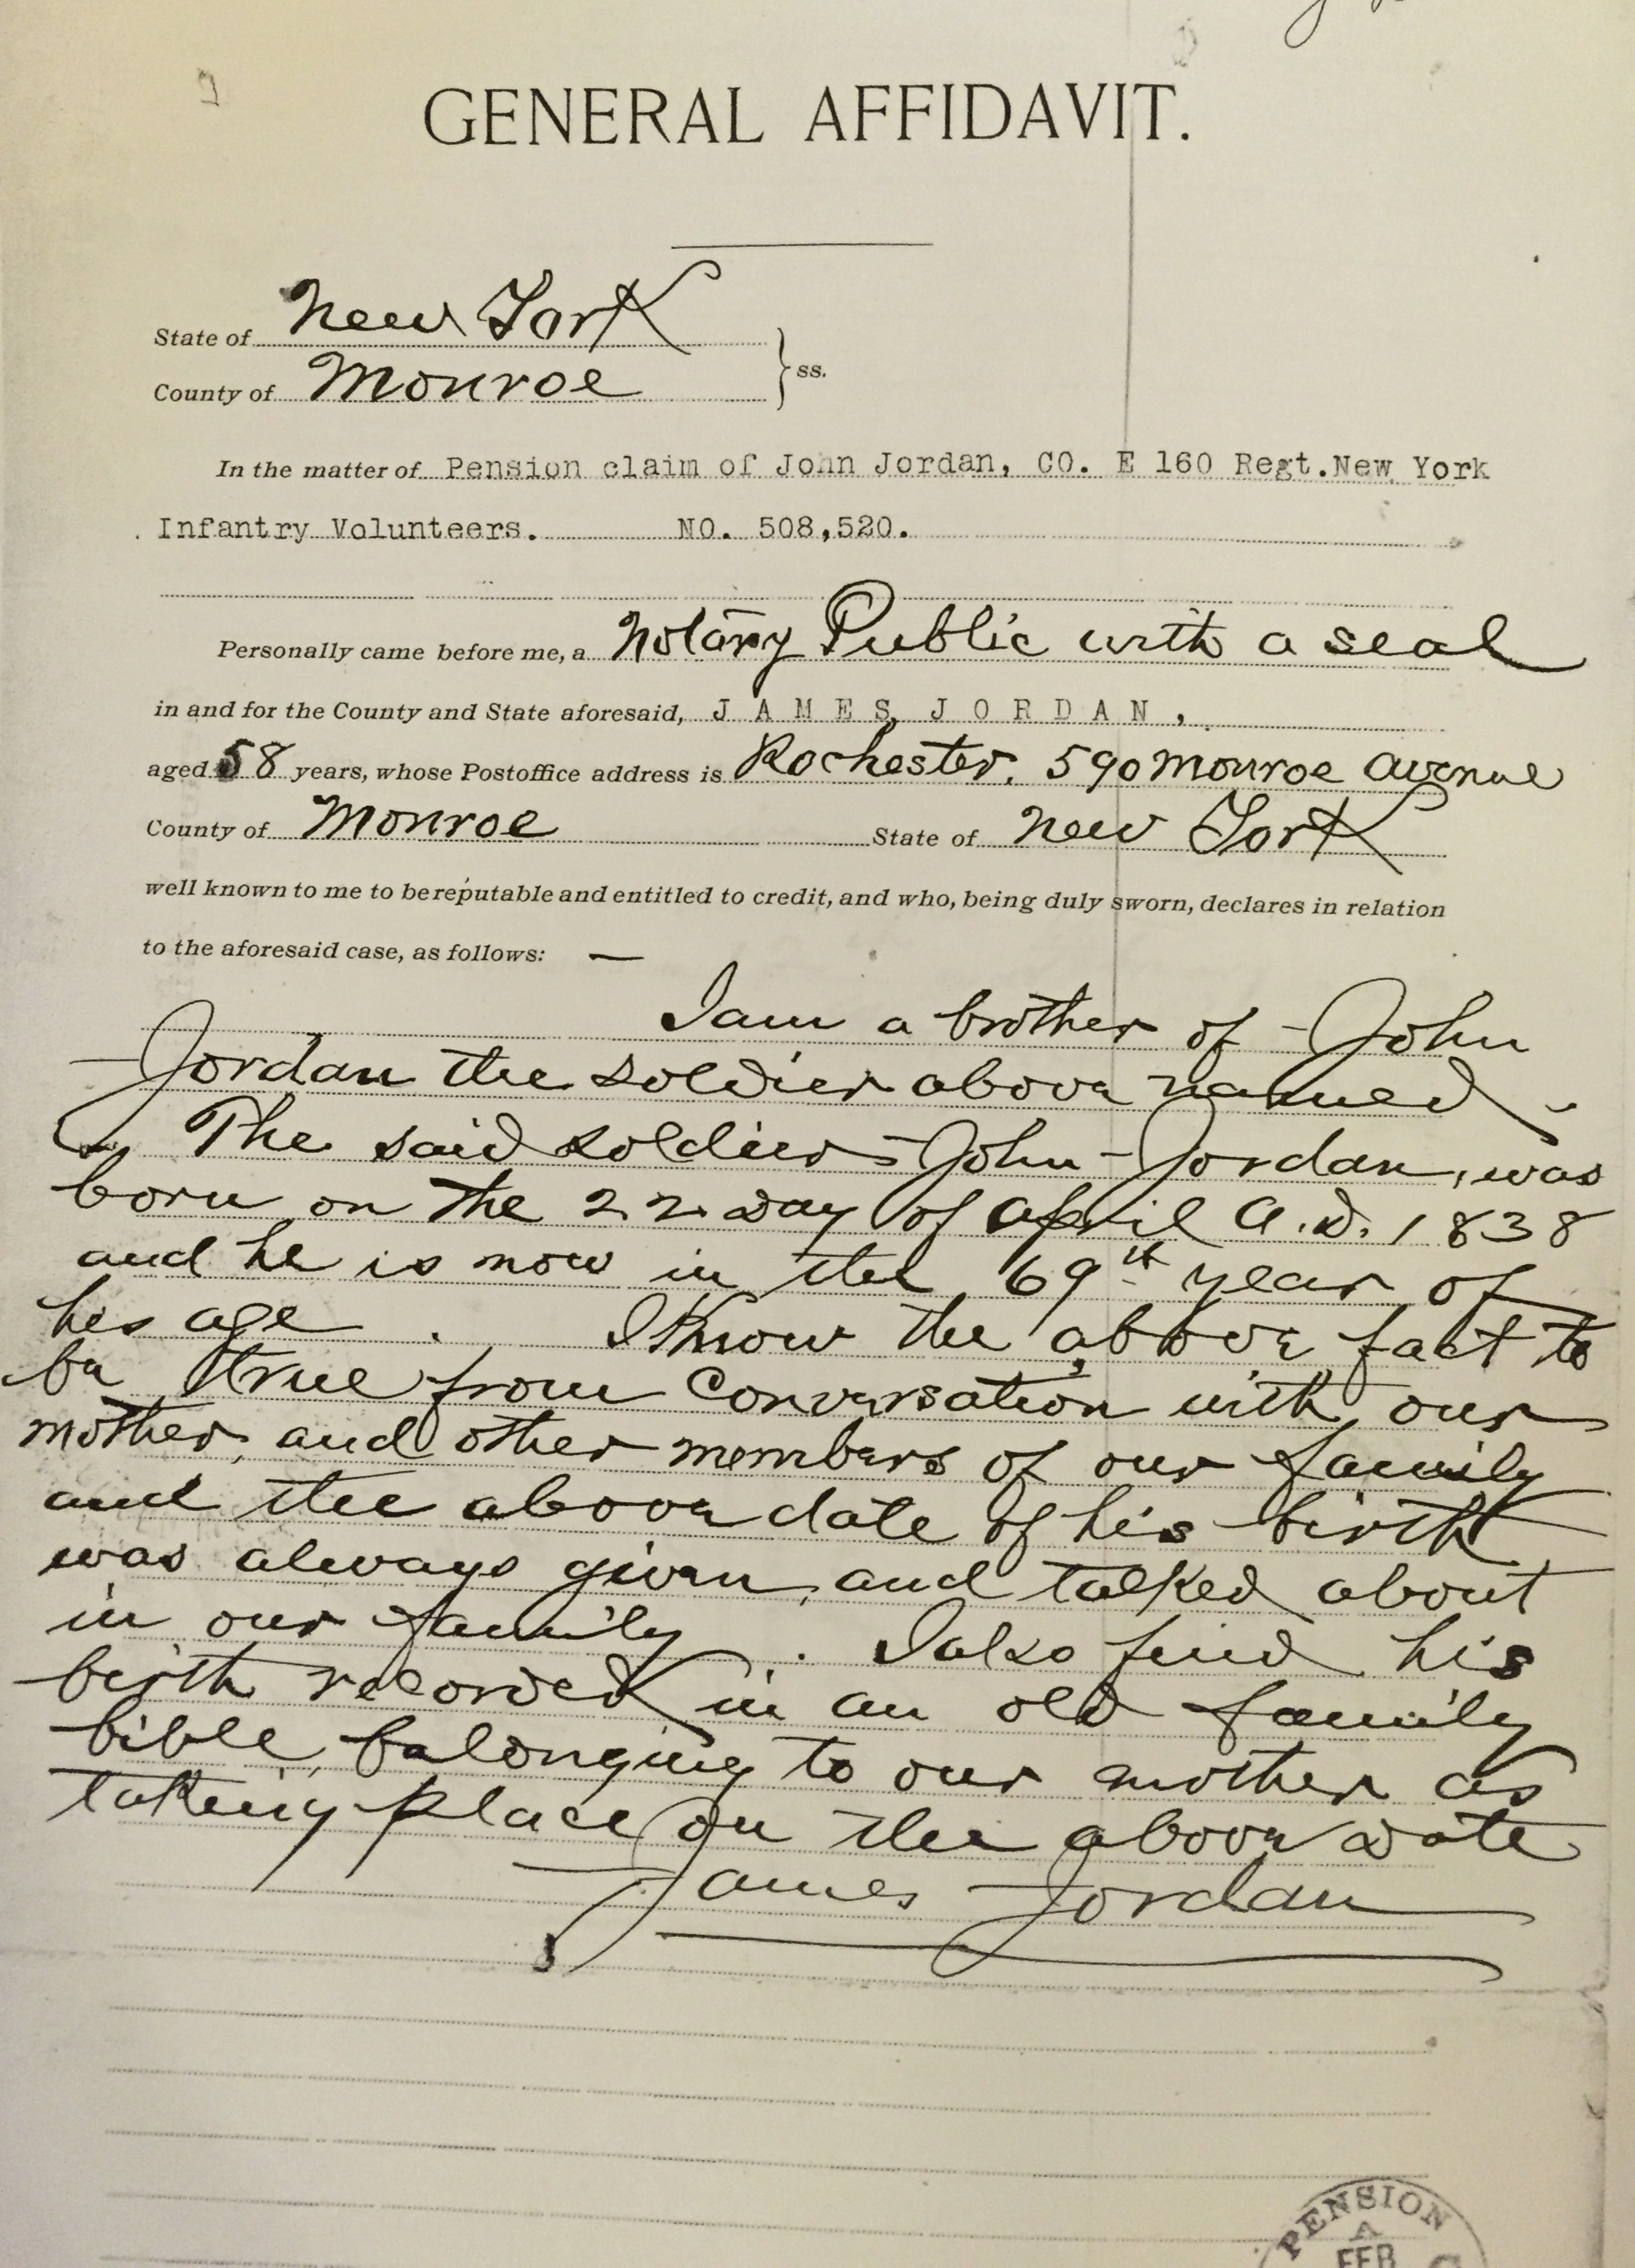 GENERAL AFFIDAVIT.
State of New York
County of Monroe } ss.
In the matter of Pension claim of John Jordan, CO. E 160 Regt. New York
Infantry Volunteers. NO. 508,520.
Personally came before me, a Notary Public with a seal
in and for the County and State aforesaid, JAMES JORDAN,
aged 58 years, whose Postoffice address is Rochester, 590 Monroe Avenue
County of Monroe State of New York
well known to me to be reputable and entitled to credit, and who, being duly sworn, declares in relation
to the aforesaid case, as follows: —
I am a brother of John
Jordan the soldier above named.
The said soldier John Jordan, was
born on the 22 day of April A.D. 1838
and he is now in the 69th year of
his age. I know the above fact to
be true from conversation with our
mother, and other members of our family
and the above date of his birth
was always given, and talked about
in our family. I also find his
birth recorded in an old family
bible, belonging to our mother as
taking place on the above date
James Jordan
PENSION
A
FEB